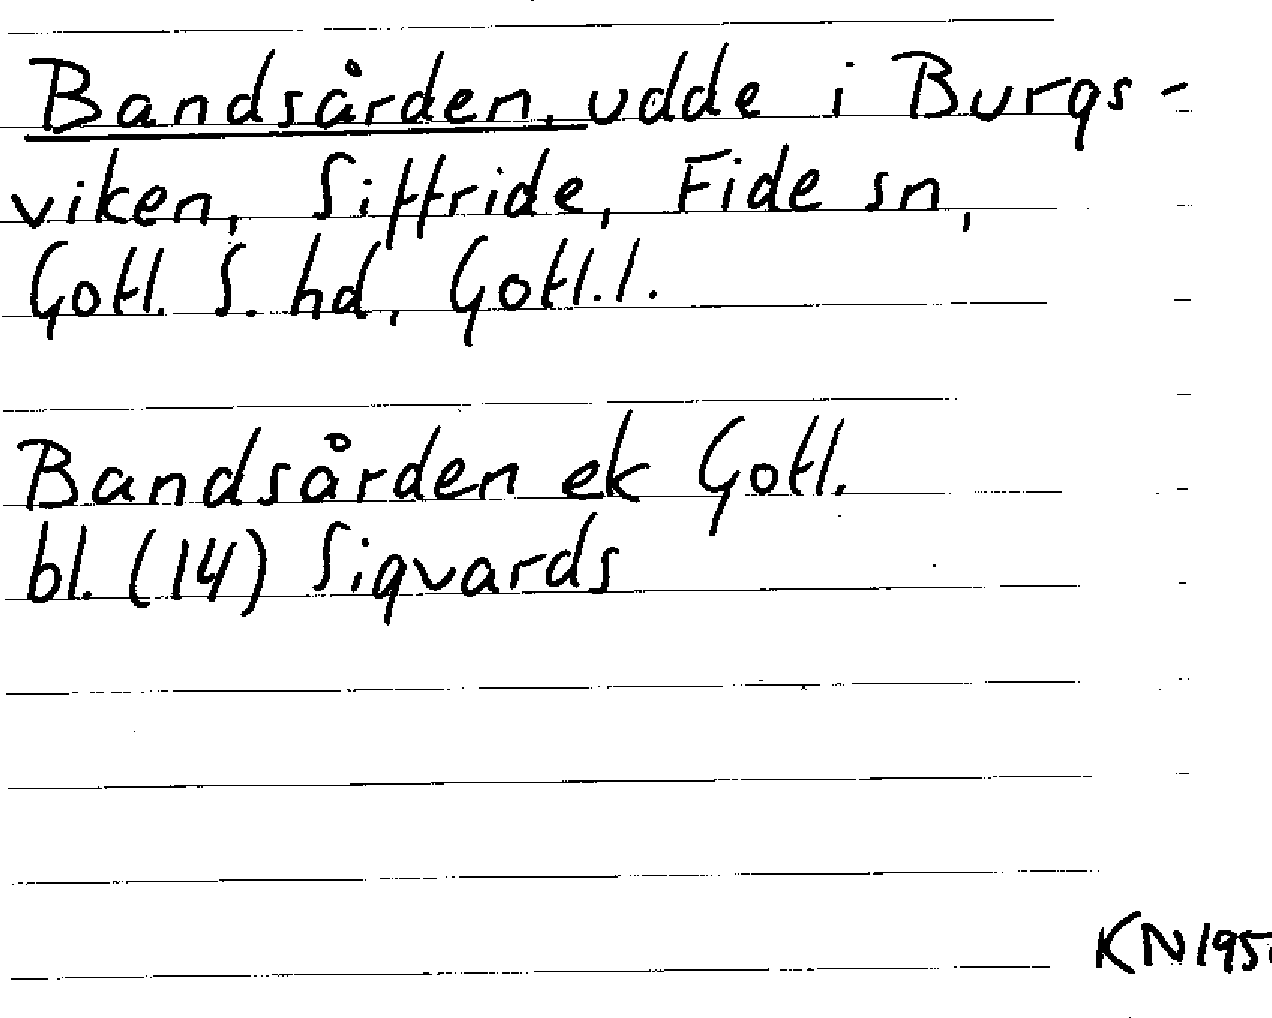 Bandsården, udde i Burgs-
viken, Siffride, Fide sn,
Gotl. S. hd, Gotl. l.
Bandsården ek Gotl.
bl. (14) Sigvards
KN